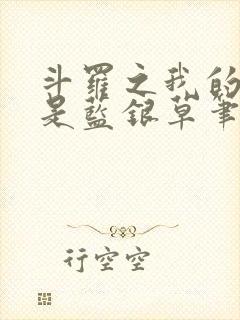 斗羅之我的
是藍銀草筆
行空空